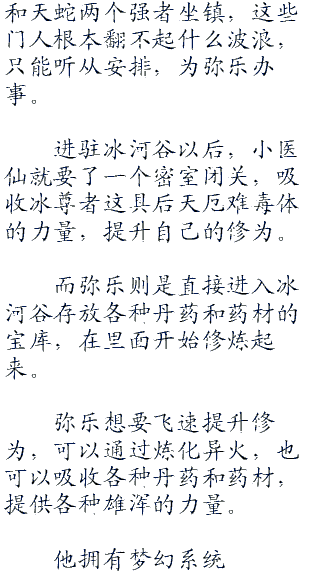 和天蛇两个强者坐镇，这些
门人根本翻不起什么波浪，
只能听从安排，为弥乐办
事。
进驻冰河谷以后，小医
仙就要了一个密室闭关，吸
收冰尊者这具后天厄难毒体
的力量，提升自己的修为。
而弥乐则是直接进入冰
河谷存放各种丹药和药材的
宝库，在里面开始修炼起
来。
弥乐想要飞速提升修
为，可以通过炼化异火，也
可以吸收各种丹药和药材，
提供各种雄浑的力量。
他拥有梦幻系统